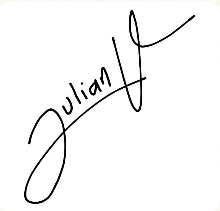 Julian V